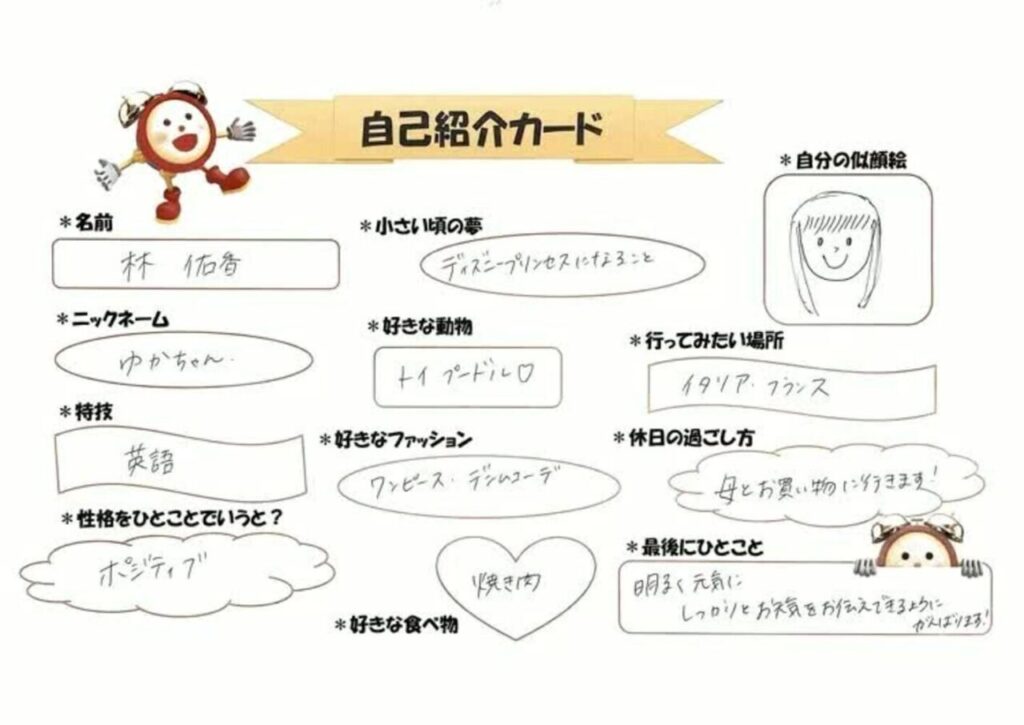 自己紹介カード
*自分の似顔絵
*名前
林 佑香
*小さい頃の夢
ディズニープリンセスになること
*ニックネーム
ゆかちゃん.
*好きな動物
トイプードル♡
*行ってみたい場所
イタリア・フランス
*特技
英語
*好きなファッション
ワンピース・デニムコーデ
*休日の過ごし方
母とお買い物に行きます!
*性格をひとことでいうと?
ポジティブ
焼き肉
*好きな食べ物
*最後にひとこと
明るく元気に
しっかりとお天気をお伝えできるように
がんばります!